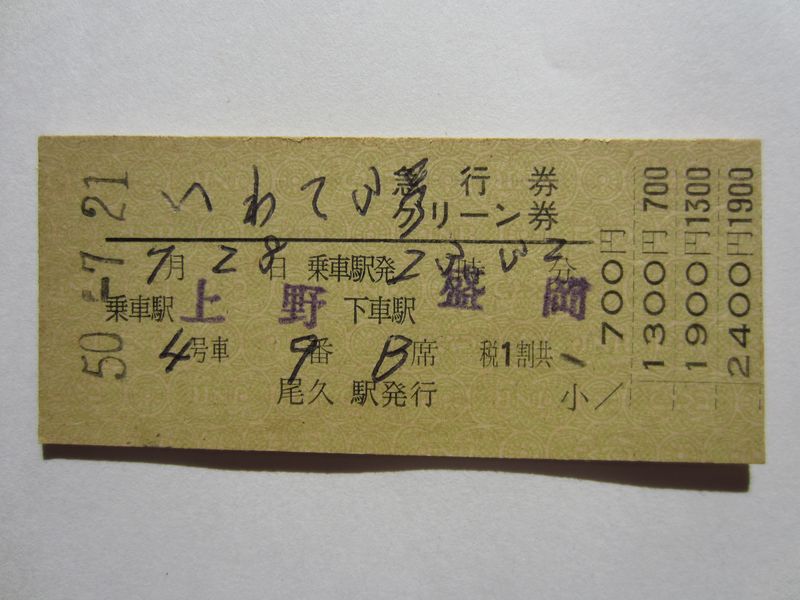 50.-7.21
いわて 急行券
グリーン券
7月28日 乗車駅発 時 分
乗車駅 上野 下車駅 盛岡
4号車 9番 B席 税1割共
尾久駅発行 小
700円
1300円 700
1900円 1300
2400円 1900